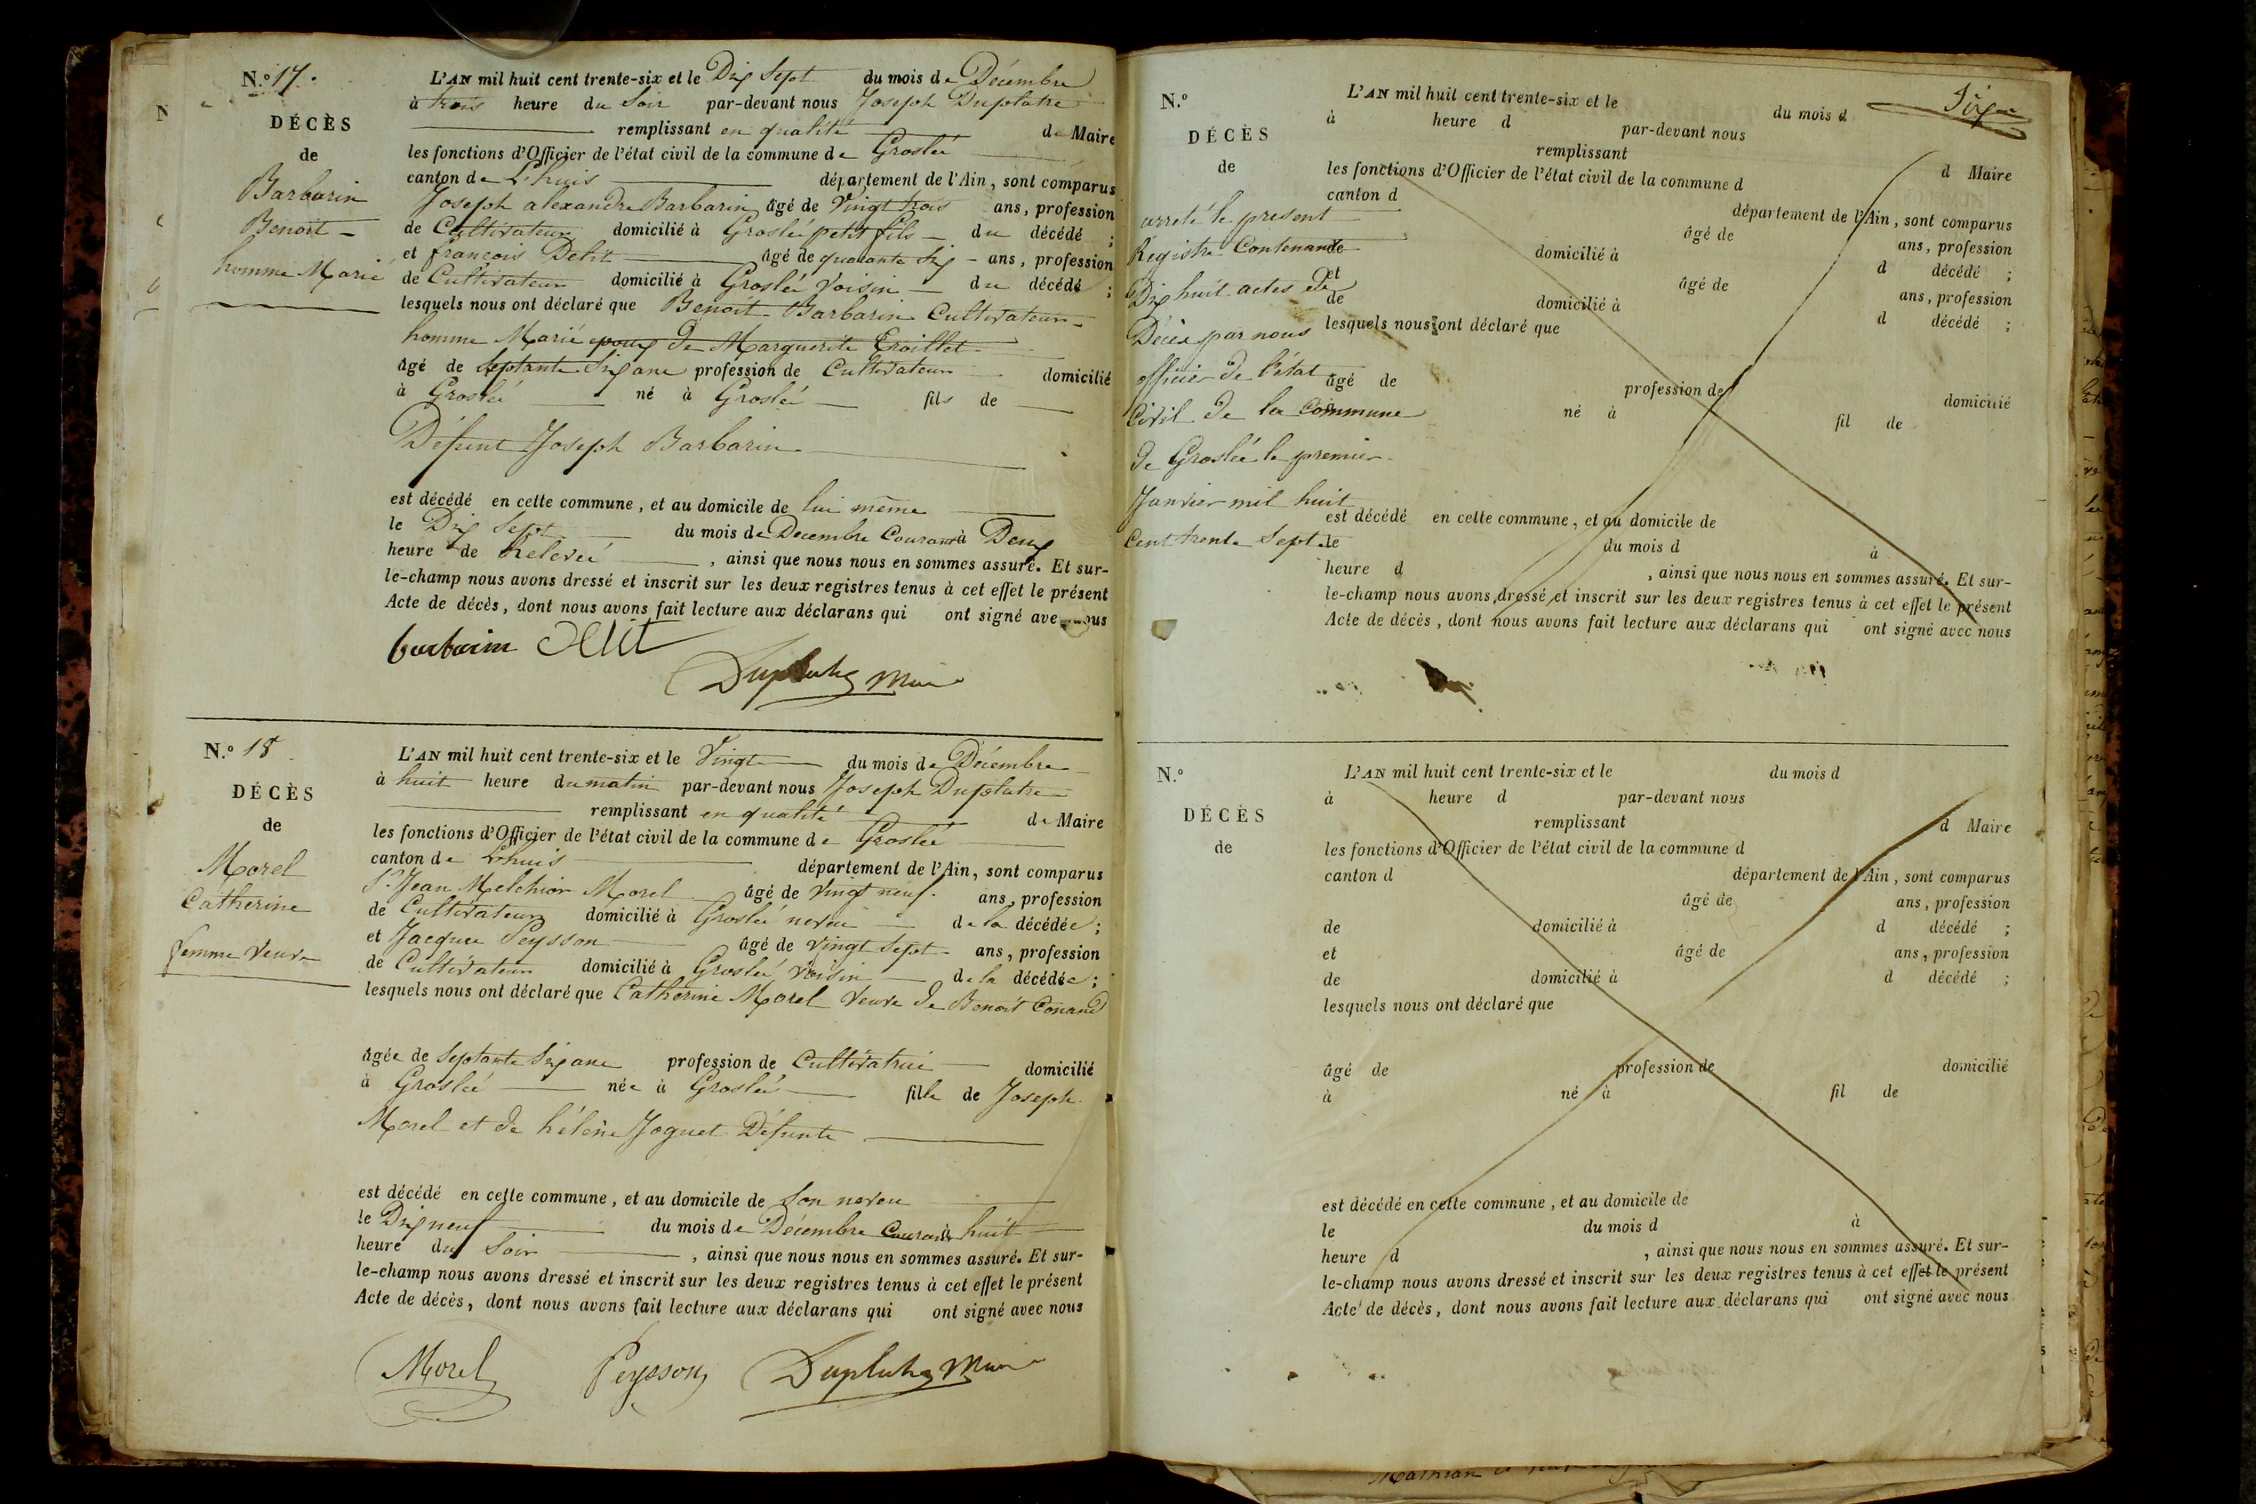 N.º 17.
DÉCÈS
de
Barbarin
Benoit
homme Marié
L'AN mil huit cent trente-six et le Dix Sept du mois de Décembre
à trois heure du Soir par-devant nous Joseph Duplatre
remplissant en qualité de Maire
les fonctions d'Officier de l'état civil de la commune de Groslée
canton de L'huis département de l'Ain, sont comparus
Joseph alexandre Barbarin âgé de Vingt trois ans, profession
de Cultivateur domicilié à Groslée petit fils du décédé ;
et françois Detit âgé de quarante Six ans, profession
de Cultivateur domicilié à Groslée Voisin du décédé ;
lesquels nous ont déclaré que Benoit Barbarin Cultivateur
homme Marié epoux de Marguerite Troillet
âgé de Septante Six ans profession de Cultivateur domicilié
à Groslée né à Groslée fils de
Défunt Joseph Barbarin
est décédé en cette commune, et au domicile de lui même
le Dix Sept du mois de Decembre Courant à Deux
heure de Relevée , ainsi que nous nous en sommes assuré. Et sur-
le-champ nous avons dressé et inscrit sur les deux registres tenus à cet effet le présent
Acte de décès, dont nous avons fait lecture aux déclarans qui ont signé avec nous
barbarin
Duplatre Maire
N.º 18
DÉCÈS
de
Morel
Catherine
femme Veuve
L'AN mil huit cent trente-six et le Vingt du mois de Décembre
à huit heure du matin par-devant nous Joseph Duplatre
remplissant en qualité de Maire
les fonctions d'Officier de l'état civil de la commune de Groslée
canton de L'huis département de l'Ain, sont comparus
Sr Jean Melchior Morel âgé de Vingt neuf. ans, profession
de Cultivateur domicilié à Groslée neveu de la décédée ;
et Jacques Peysson âgé de Vingt Sept ans, profession
de Cultivateur domicilié à Groslée Voisin de la décédée ;
lesquels nous ont déclaré que Catherine Morel Veuve de Benoit Conand
âgée de Septante Six ans profession de Cultivatrice domicilié
à Groslée née à Groslée fille de Joseph
Morel et de hélène Joguet Défunte
est décédé en cette commune, et au domicile de Son neveu
le Dix neuf du mois de Décembre Courant à huit
heure du Soir , ainsi que nous nous en sommes assuré. Et sur-
le-champ nous avons dressé et inscrit sur les deux registres tenus à cet effet le présent
Acte de décès, dont nous avons fait lecture aux déclarans qui ont signé avec nous
Morel Peysson Duplatre Maire
N.º
DÉCÈS
de
arreté le present
Régistre Contenant
Dix huit actes de
Décès par nous
officier de l'état
Civil de la Commune
de Groslée le premier
Janvier mil huit
Cent trente Sept.
L'AN mil huit cent trente-six et le du mois d
à heure d par-devant nous
remplissant d Maire
les fonctions d'Officier de l'état civil de la commune d
canton d département de l'Ain, sont comparus
âgé de ans, profession
de domicilié à d décédé ;
et âgé de ans, profession
de domicilié à d décédé ;
lesquels nous ont déclaré que
âgé de profession de domicilié
à né à fil de
est décédé en cette commune, et au domicile de
le du mois d à
heure d , ainsi que nous nous en sommes assuré. Et sur-
le-champ nous avons dressé et inscrit sur les deux registres tenus à cet effet le présent
Acte de décès, dont nous avons fait lecture aux déclarans qui ont signé avec nous
N.º
DÉCÈS
de
L'AN mil huit cent trente-six et le du mois d
à heure d par-devant nous
remplissant d Maire
les fonctions d'Officier de l'état civil de la commune d
canton d département de l'Ain, sont comparus
âgé de ans, profession
de domicilié à d décédé ;
et âgé de ans, profession
de domicilié à d décédé ;
lesquels nous ont déclaré que
âgé de profession de domicilié
à né à fil de
est décédé en cette commune, et au domicile de
le du mois d à
heure d , ainsi que nous nous en sommes assuré. Et sur-
le-champ nous avons dressé et inscrit sur les deux registres tenus à cet effet le présent
Acte de décès, dont nous avons fait lecture aux déclarans qui ont signé avec nous